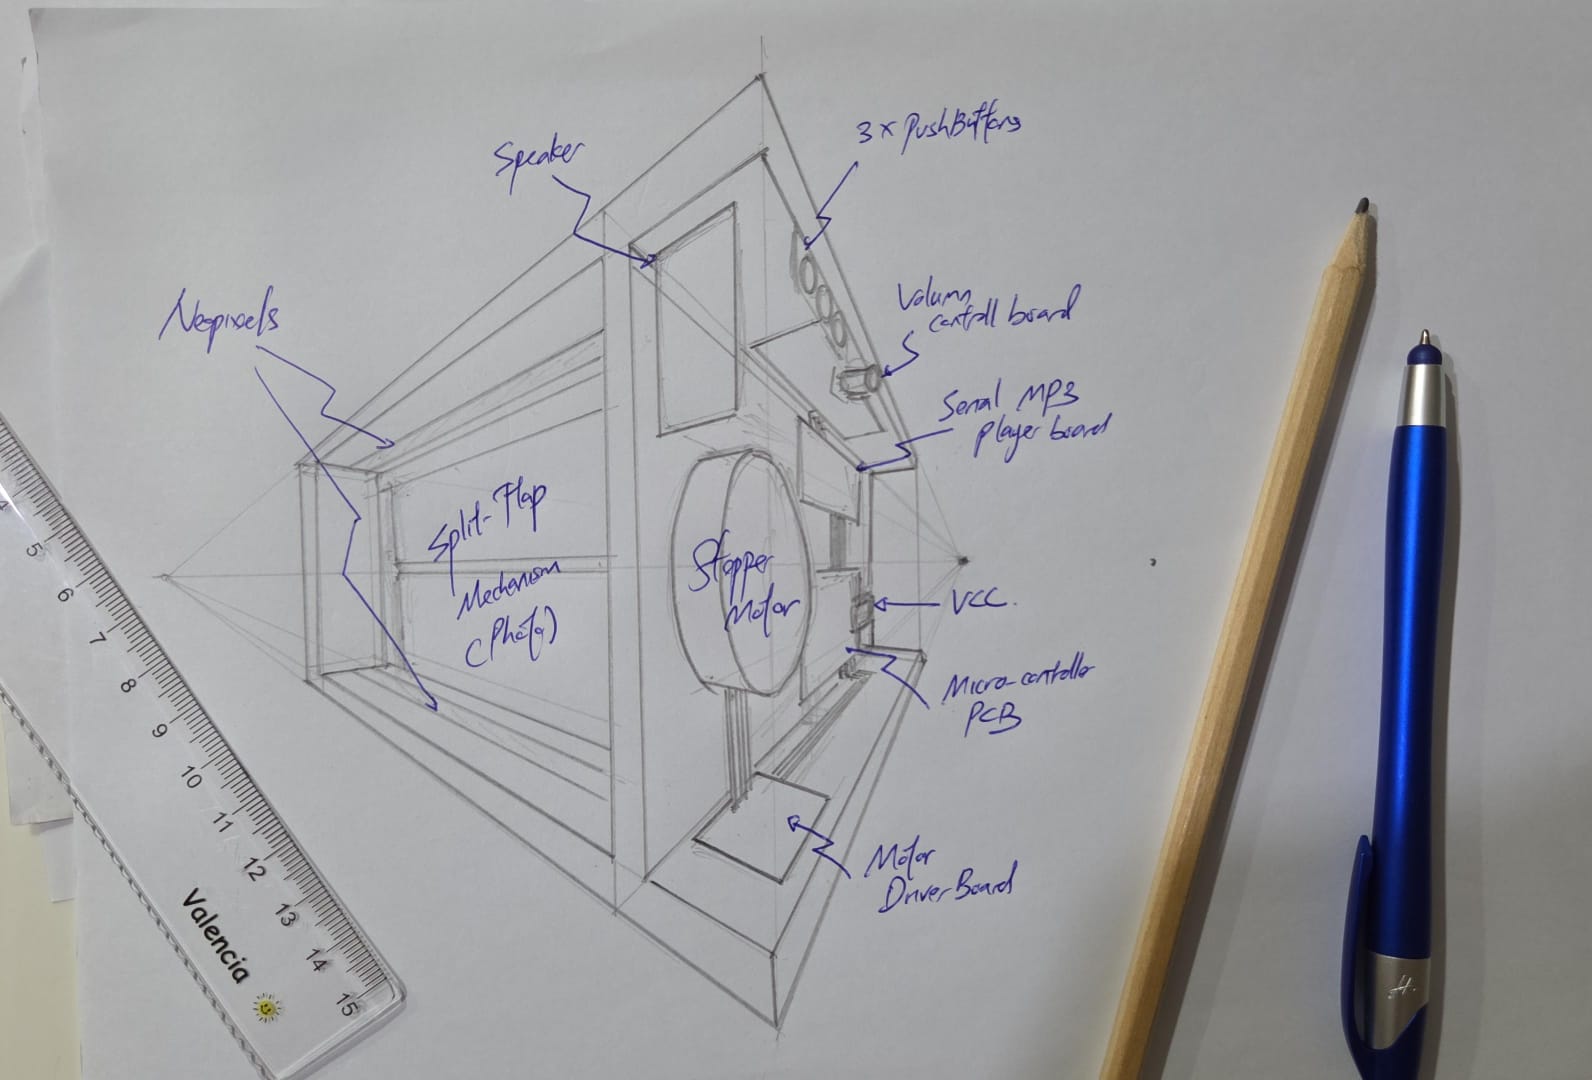 Speaker
3x PushButtons
Neopixels
Volumn
controll board
Serial MP3
player board
Split-Flap
Mechanism
(Photo)
Stepper
Motor
VCC.
Micro-controller
PCB
Motor
Driver Board
4
5
6
7
8
9
10
11
12
13
14
15
Valencia
H.